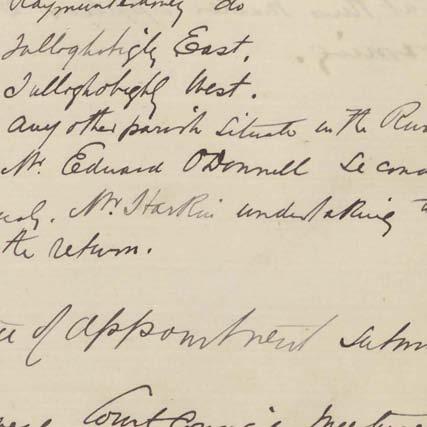 Raymunterdoney do
Tulloghobigly East,
Tulloghobigly West.
any other parish situate in the Rur
Mr. Edward O'Donnell secon
Mr Harkin undertaking t
the return.
of appointment submi
Court Council Meeting